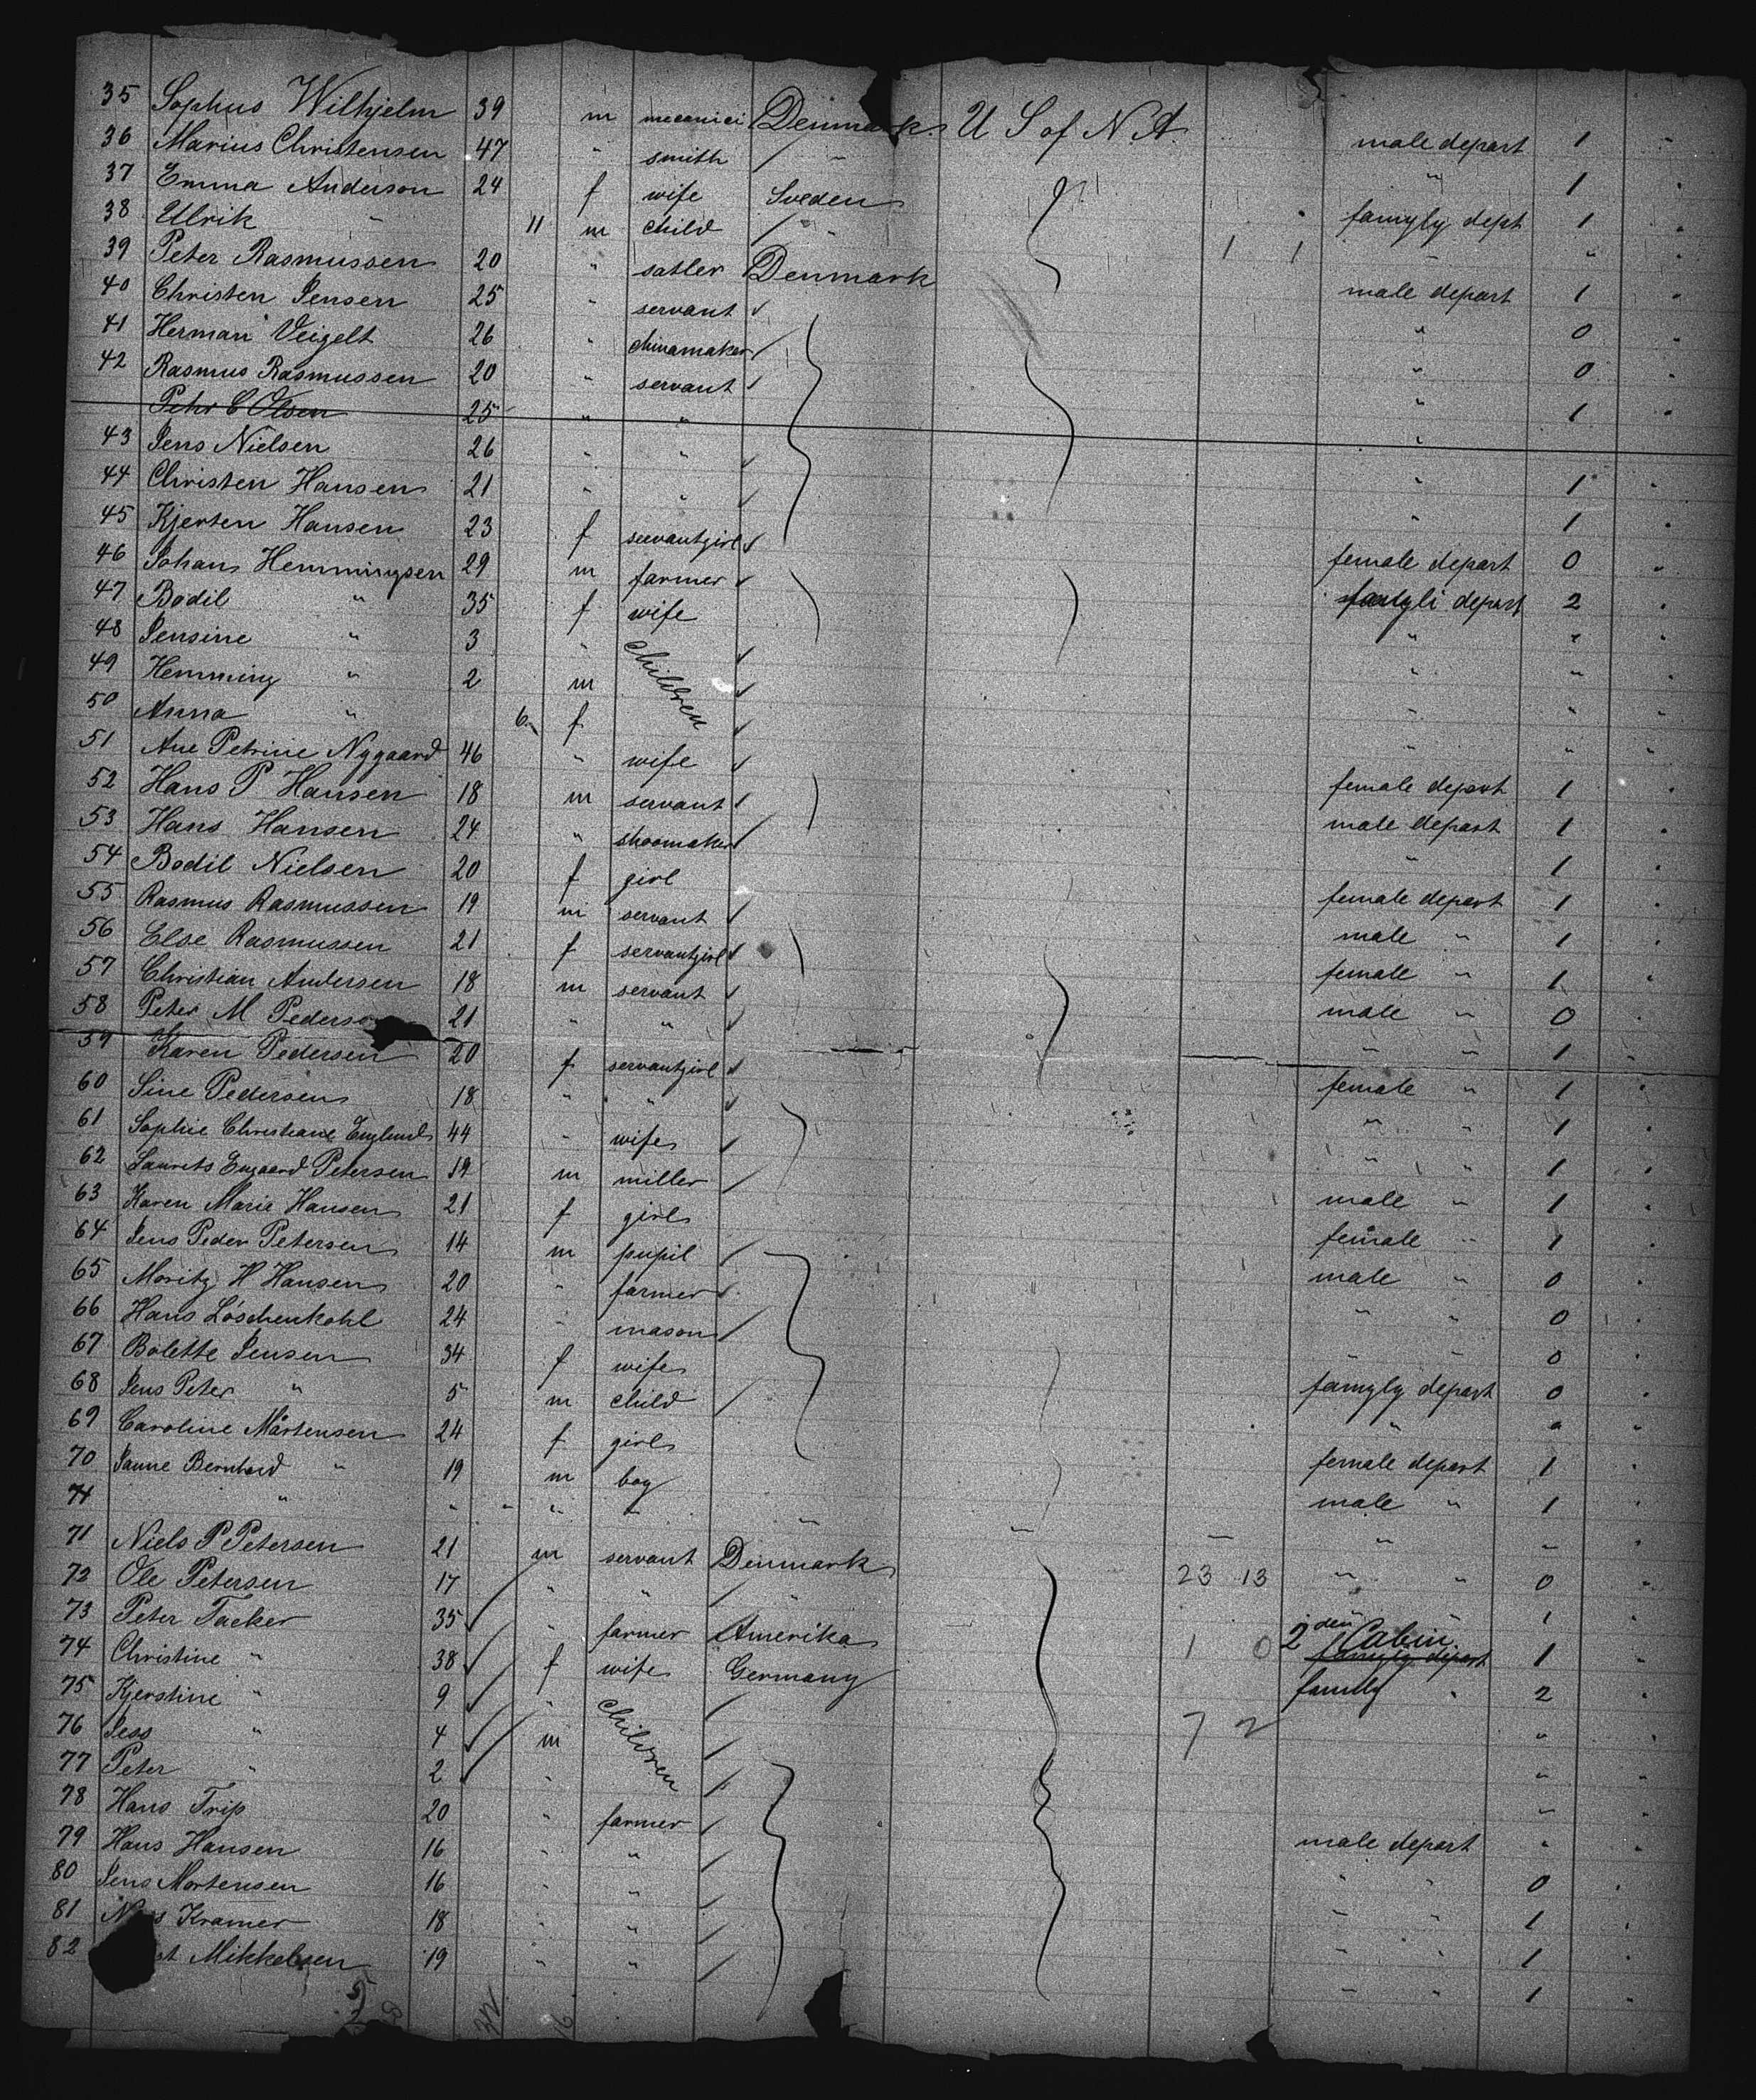 35 Sophus Wilhjelm 39 m mecanici Denmark U S of N A male depart 1 "
36 Marius Christensen 47 " smith / " " 1 "
37 Emma Anderson 24 f wife Sveden famyly dept 1 "
38 Ulrik " 11 m child / " 1 1 " " "
39 Peter Rasmussen 20 " satler Denmark male depart 1 "
40 Christen Jensen 25 " servant " 0 "
41 Herman Veigelt 26 " chinamaker " 0 "
42 Rasmus Rasmussen 20 " servant " 1 "
Petr C Olsen 25 " " "
43 Jens Nielsen 26 " " " 1 "
44 Christen Hansen 21 " " " 1 "
45 Kjersten Hansen 23 f servantgirl female depart 0 "
46 Johans Hemmingsen 29 m farmer famyli depart 2 "
47 Bodil " 35 f wife " " "
48 Jensine " 3 " children " " "
49 Hemming " 2 m " " "
50 Anna " 6 f " " "
51 Ane Petrine Nygaard 46 " wife female depart 1 "
52 Hans P Hansen 18 m servant male depart 1 "
53 Hans Hansen 24 " shoomaker " 1 "
54 Bodil Nielsen 20 f girl female depart 1 "
55 Rasmus Rasmussen 19 m servant male " 1 "
56 Else Rasmussen 21 f servantgirl female " 1 "
57 Christian Andersen 18 m servant male " 0 "
58 Peter M Pederso 21 " " " " 1 "
59 Karen Pedersen 20 f servantgirl female " 1 "
60 Sine Pedersen 18 " " " " 1 "
61 Sophie Christiane Englund 44 " wife " " 1 "
62 Laurits Engaard Petersen 19 m miller male " 1 "
63 Karen Marie Hansen 21 f girl female " 1 "
64 Jens Peder Petersen 14 m pupil male " 0 "
65 Moritz H Hansen 20 " farmer " " 0 "
66 Hans Löschenkohl 24 " mason " " 0 "
67 Bolette Jensen 34 f wife famyly depart 0 "
68 Jens Peter " 5 m child " " "
69 Caroline Mårtensen 24 f girl female depart 1 "
70 Janne Bernhard " 19 m boy male " 1 "
71 " " " " " " " "
71 Niels P Petersen 21 m servant Denmark 23 13 " " 0 "
72 Ole Petersen 17 " " / " 1 "
73 Peter Tacker 35 " farmer Amerika 1 0 2den Cabin famyly depart 1 "
74 Christine " 38 f wife Germany family " 2 "
75 Kjerstine " 9 " children / 7 2 " "
76 Jess " 4 m / " "
77 Peter " 2 " / " "
78 Hans Trip 20 " farmer / male depart " "
79 Hans Hansen 16 " " / " " 0 "
80 Jens Mortensen 16 " " / " " 1 "
81 Kramer 18 " " / " " 1 "
82 Mikkelsen 19 " " / " " 1 "